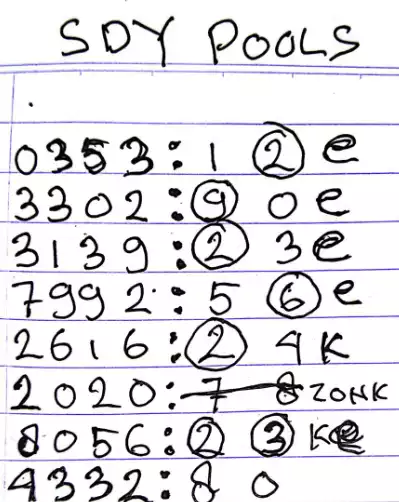 SDY POOLS
0353: 1 2 e
3302: 9 0 e
3139: 2 3 e
7992: 5 6 e
2616: 2 4 K
2020: 7 8 ZONK
8056: 2 3 K
4332: 8 0